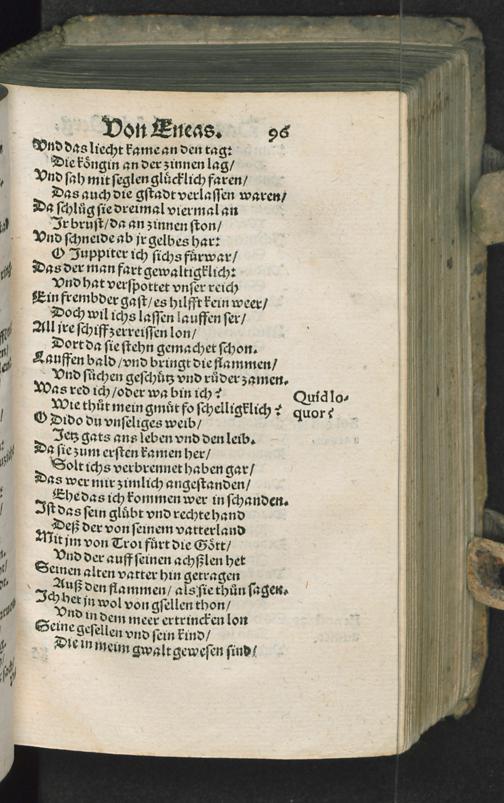 Von Eneas. 96
Vnd das liecht kame an den tag:
Die köngin an der zinnen lag/
Vnd sah mit seglen glücklich faren/
Das auch die gstadt verlassen waren/
Da schlůg sie dreimal viermal an
Ir brust/ da an zinnen ston/
Vnd schneide ab jr gelbes har:
O Juppiter ich sichs fürwar/
Das der man fart gewaltigklich:
Vnd hat verspottet vnser reich
Ein frembder gast/ es hilfft kein weer/
Doch wil ichs lassen lauffen ser/
All jre schiff zerreissen lon/
Dort da sie stehn gemachet schon.
Lauffen bald/ vnd bringt die flammen/
Vnd sůchen geschütz vnd rüder zamen.
Was red ich/ oder wa bin ich?
Wie thůt mein gmüt so schelligklich?
Quid lo-
quor?
O Dido du vnseliges weib/
Jetz gats ans leben vnd den leib.
Da sie zum ersten kamen her/
Solt ichs verbrennet haben gar/
Das wer mir zimlich angestanden/
Ehe das ich kommen wer in schanden.
Ist das sein glübt vnd rechte hand
Deß der von seinem vatterland
Mit jm von Troi fürt die Gött/
Vnd der auff seinen achßlen het
Seinen alten vatter hin getragen
Auß den flammen/ als sie thün sagen.
Ich het jn wol von gsellen thon/
Vnd in dem meer ertrincken lon
Seine gesellen vnd sein kind/
Die in meim gwalt gewesen sind/